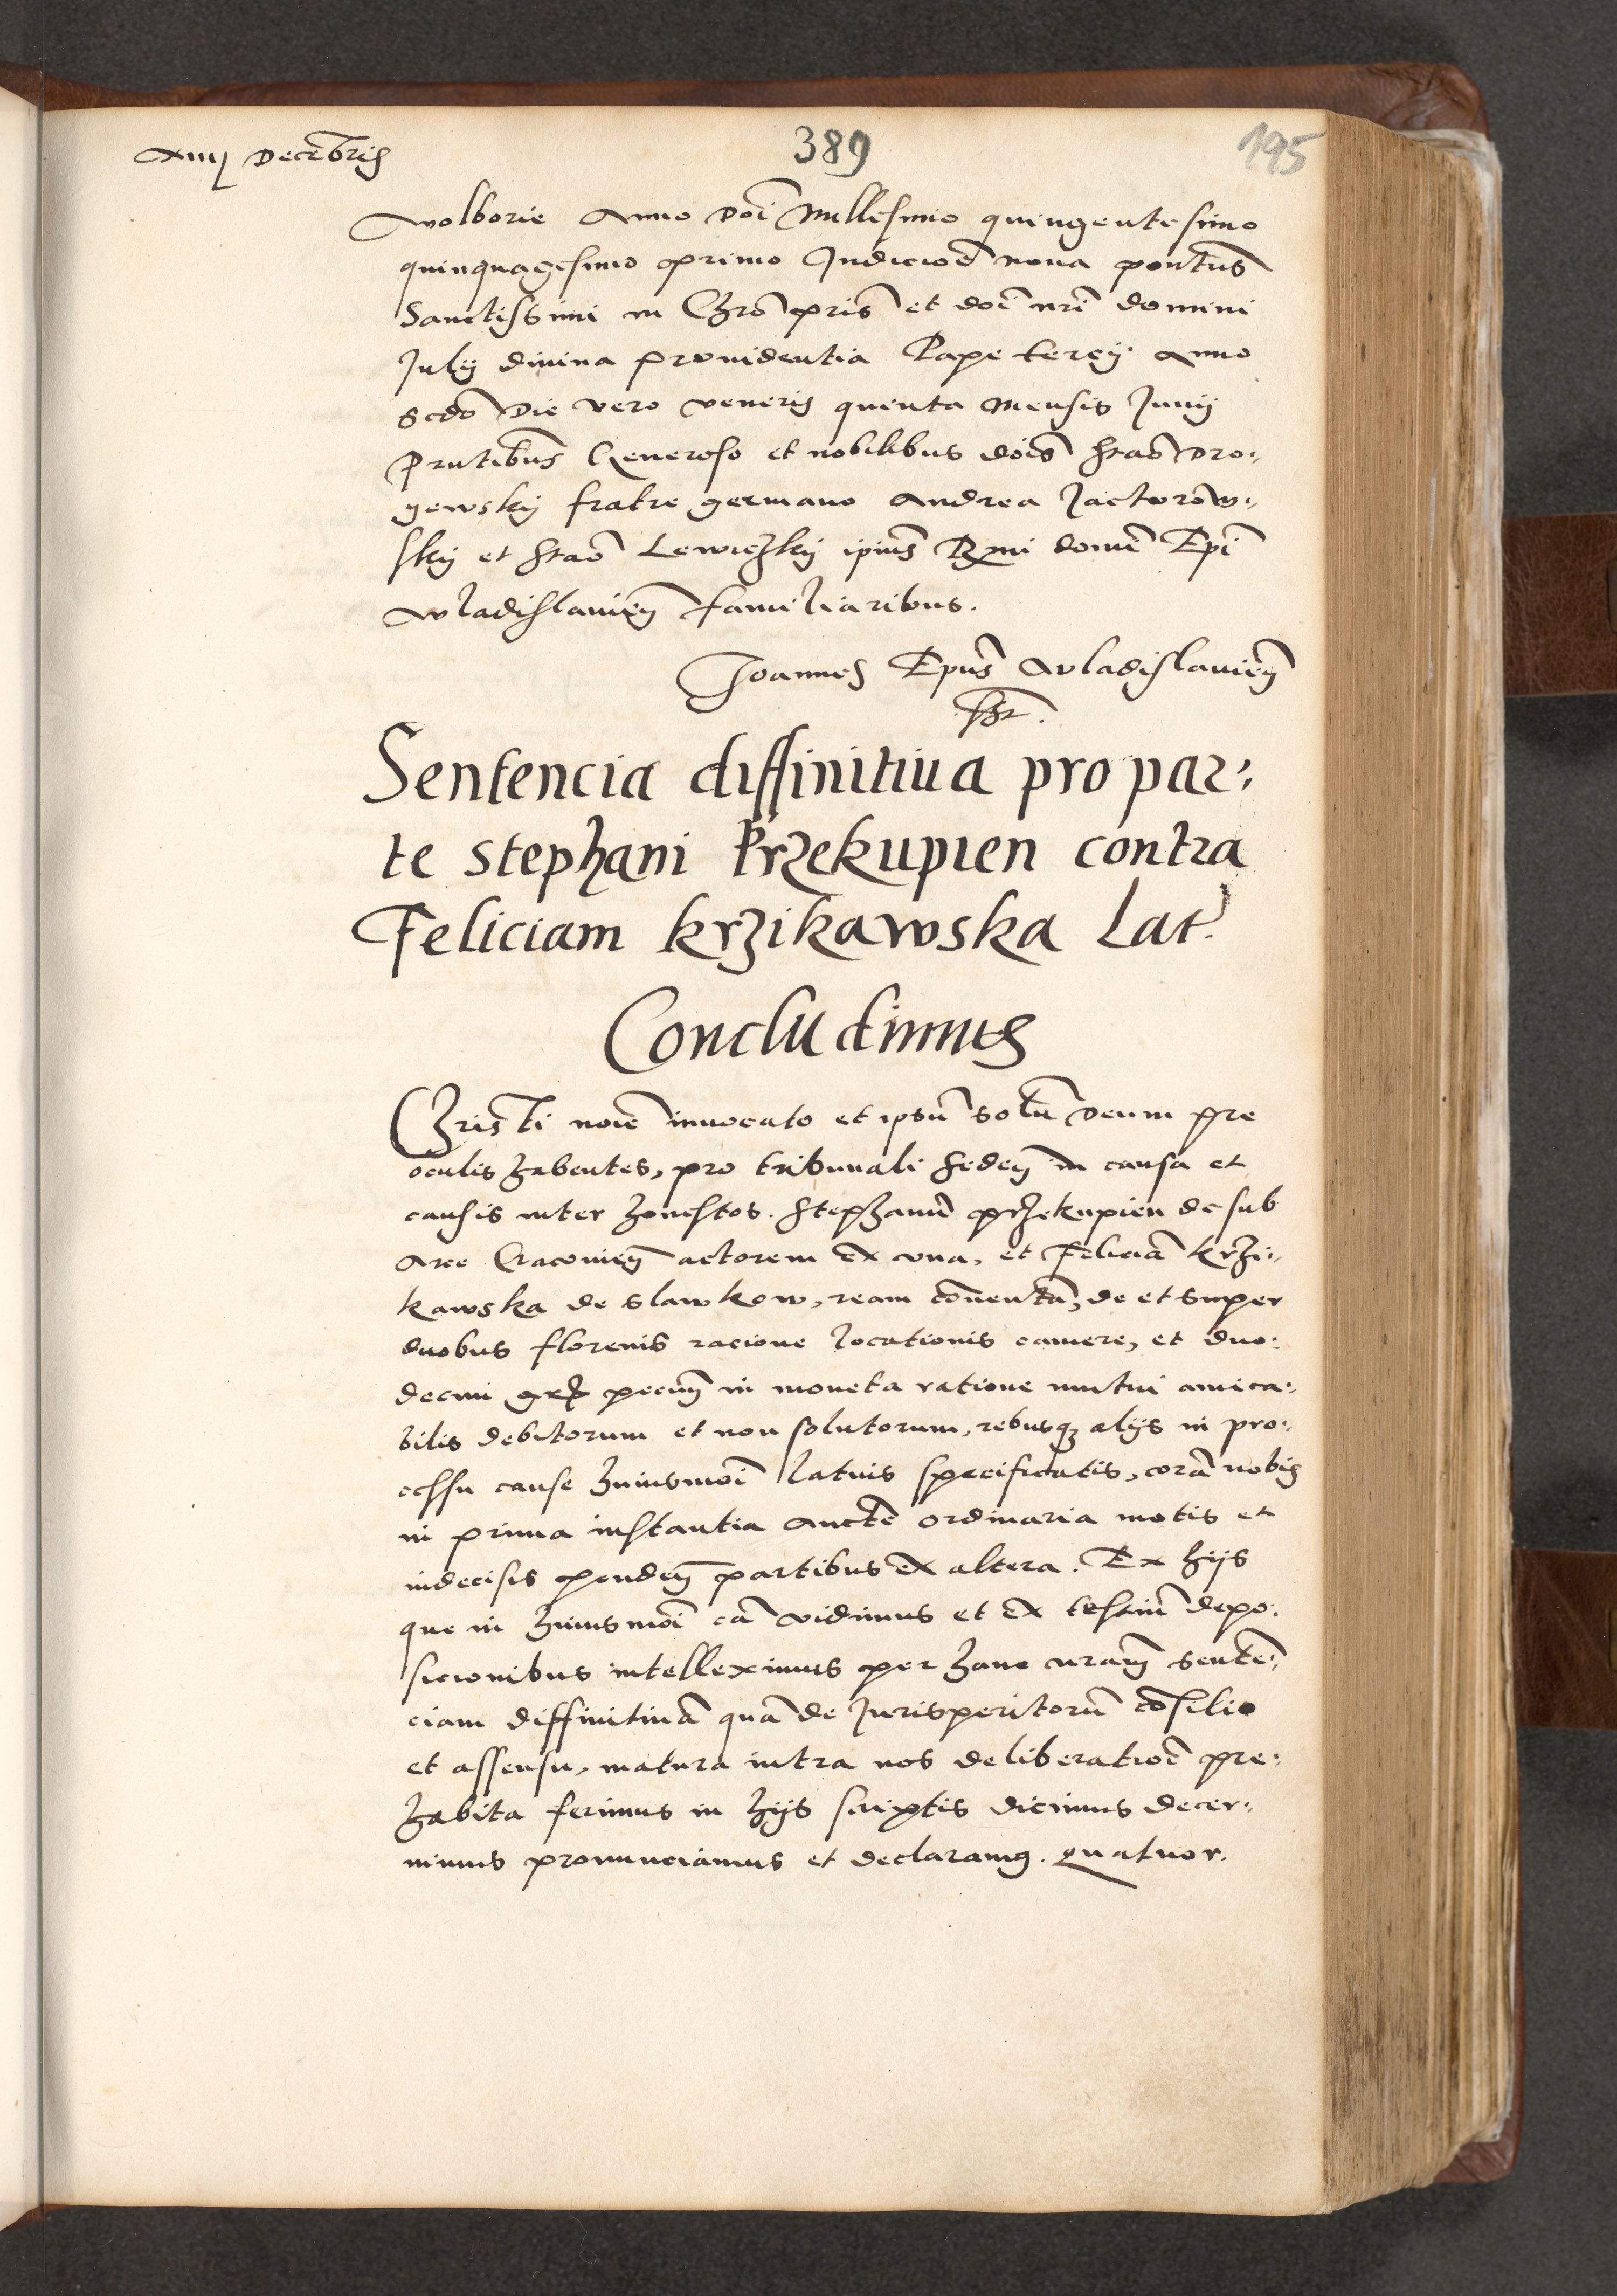 389
195
Decēbris
Wolborie Anno Doī Millesimo quingentesimo
quinquagesimo primo Indicioē nona pontūs
Sanctissimi in Chrō pris̄ et doī nrī domini
Julij divina providentia Pape tercij Anno
Scdō Die vero veneris quinta Mensis Junij
Prntibus̄ Generoso et nobilibus dōis Staō Dro:
gewskij fratre germano Andrea Jactorow:
skij et Staō ipius̄ Rmi domī Epī
Wladislavien̄ familiaribus.
Joannes Epūs Wladislavien̄
Sentencia diffinitiua pro par:
te Stephani Przekupien contra
Feliciam Krzikawska Lat.
Concludimus
Christi noīe invocato et ipsū solū Deum pre
oculis habentes, pro tribunali seden̄ in causa et
causis inter honestos. Stephanū przekupien de sub
Arce Cracovien̄ actorem ex vna, et Feliciā Krzi:
kawska de Slawkow, ream cōventā, de et super
duobus florenis racione locationis camere, et duo:
decim pecun̄ in moneta ratione mutui amica:
bilis debitorum et non solutorum, rebusq; alijs in pro:
cessu cause huiusmōi latius specificatis, corā nobis
in prima instantia Auctē ordinaria motis et
indecisis penden̄ partibus ex altera. Ex hijs
que in huiusmōi cā vidimus et ex testiū depo:
sicionibus intelleximus per hanc nram̄ sentē:
ciam diffinitivā quā de Jurisperitorū cōsilio
et assensu, matura intra nos deliberatioē pre:
habita ferimus in hijs scriptis dicimus decer:
nimus pronunciamus et declaramus. quatuor.